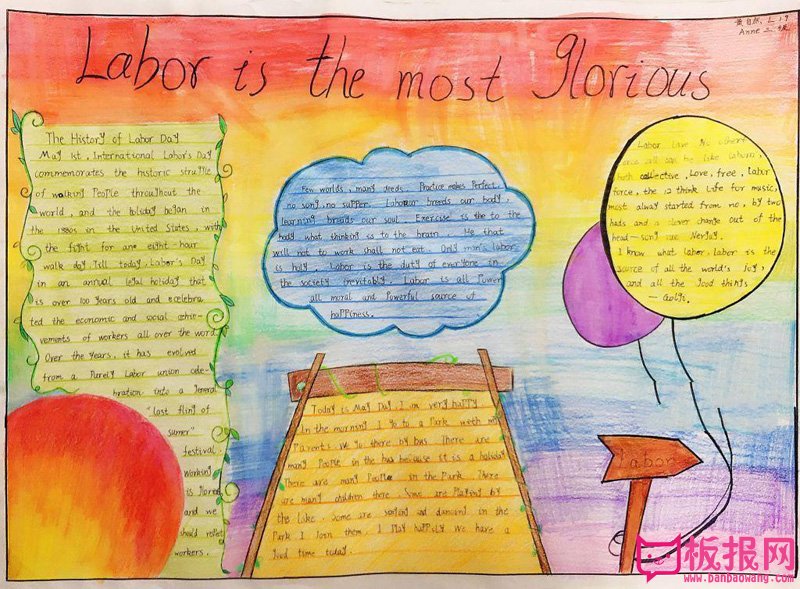 Labor is the most glorious
Anne
The History of Labor Day
May 1st, International Labor's Day
commemorates the historic struggle
of walking People throughout the
world, and the holiday began in
the 1880s in the United States, with
the fight for an eight-hour
walk day. Till today, Labor's Day
in an annual legal holiday that
is over 100 years old and celebra
ted the economic and social achie-
vements of workers all over the word
Over the years, it has evolved
from a Purely Labor union cele-
bration into a general
"last fling of
sumer"
festival.
working
is
and we
should
workers.
Few worlds, many deeds. Practice makes Perfect.
no song, no supper. Labour breeds our body,
learning breads our soul. Exercise is the to the
body what thinking is to the brain. He that
will not to work shall not eat. Only man's labor
is holy. Labor is the duty of everyone in
the society inevitably. Labor is all Power
all moral and Powerful source of
happiness.
Labor Love No other
all be like laborn,
both collective, Love, free, labor
force, the 12 think life for music,
most alway started from no, by two
hads and a clever change out of the
head-song
I know what labor, labor is the
source of all the world's joy,
and all the good things
Today is May Day. I am very happy
In the morning I go to a Park with my
Parents we go there by bus. There are
many People in the bus because it is a holiday
There are many People in the Park. There
are many children there. Some are Playing by
the lake, some are singing and dancing in the
Park I Join them. I Play happily We have a
good time today.
Labor
板报网
www.banbaowang.com